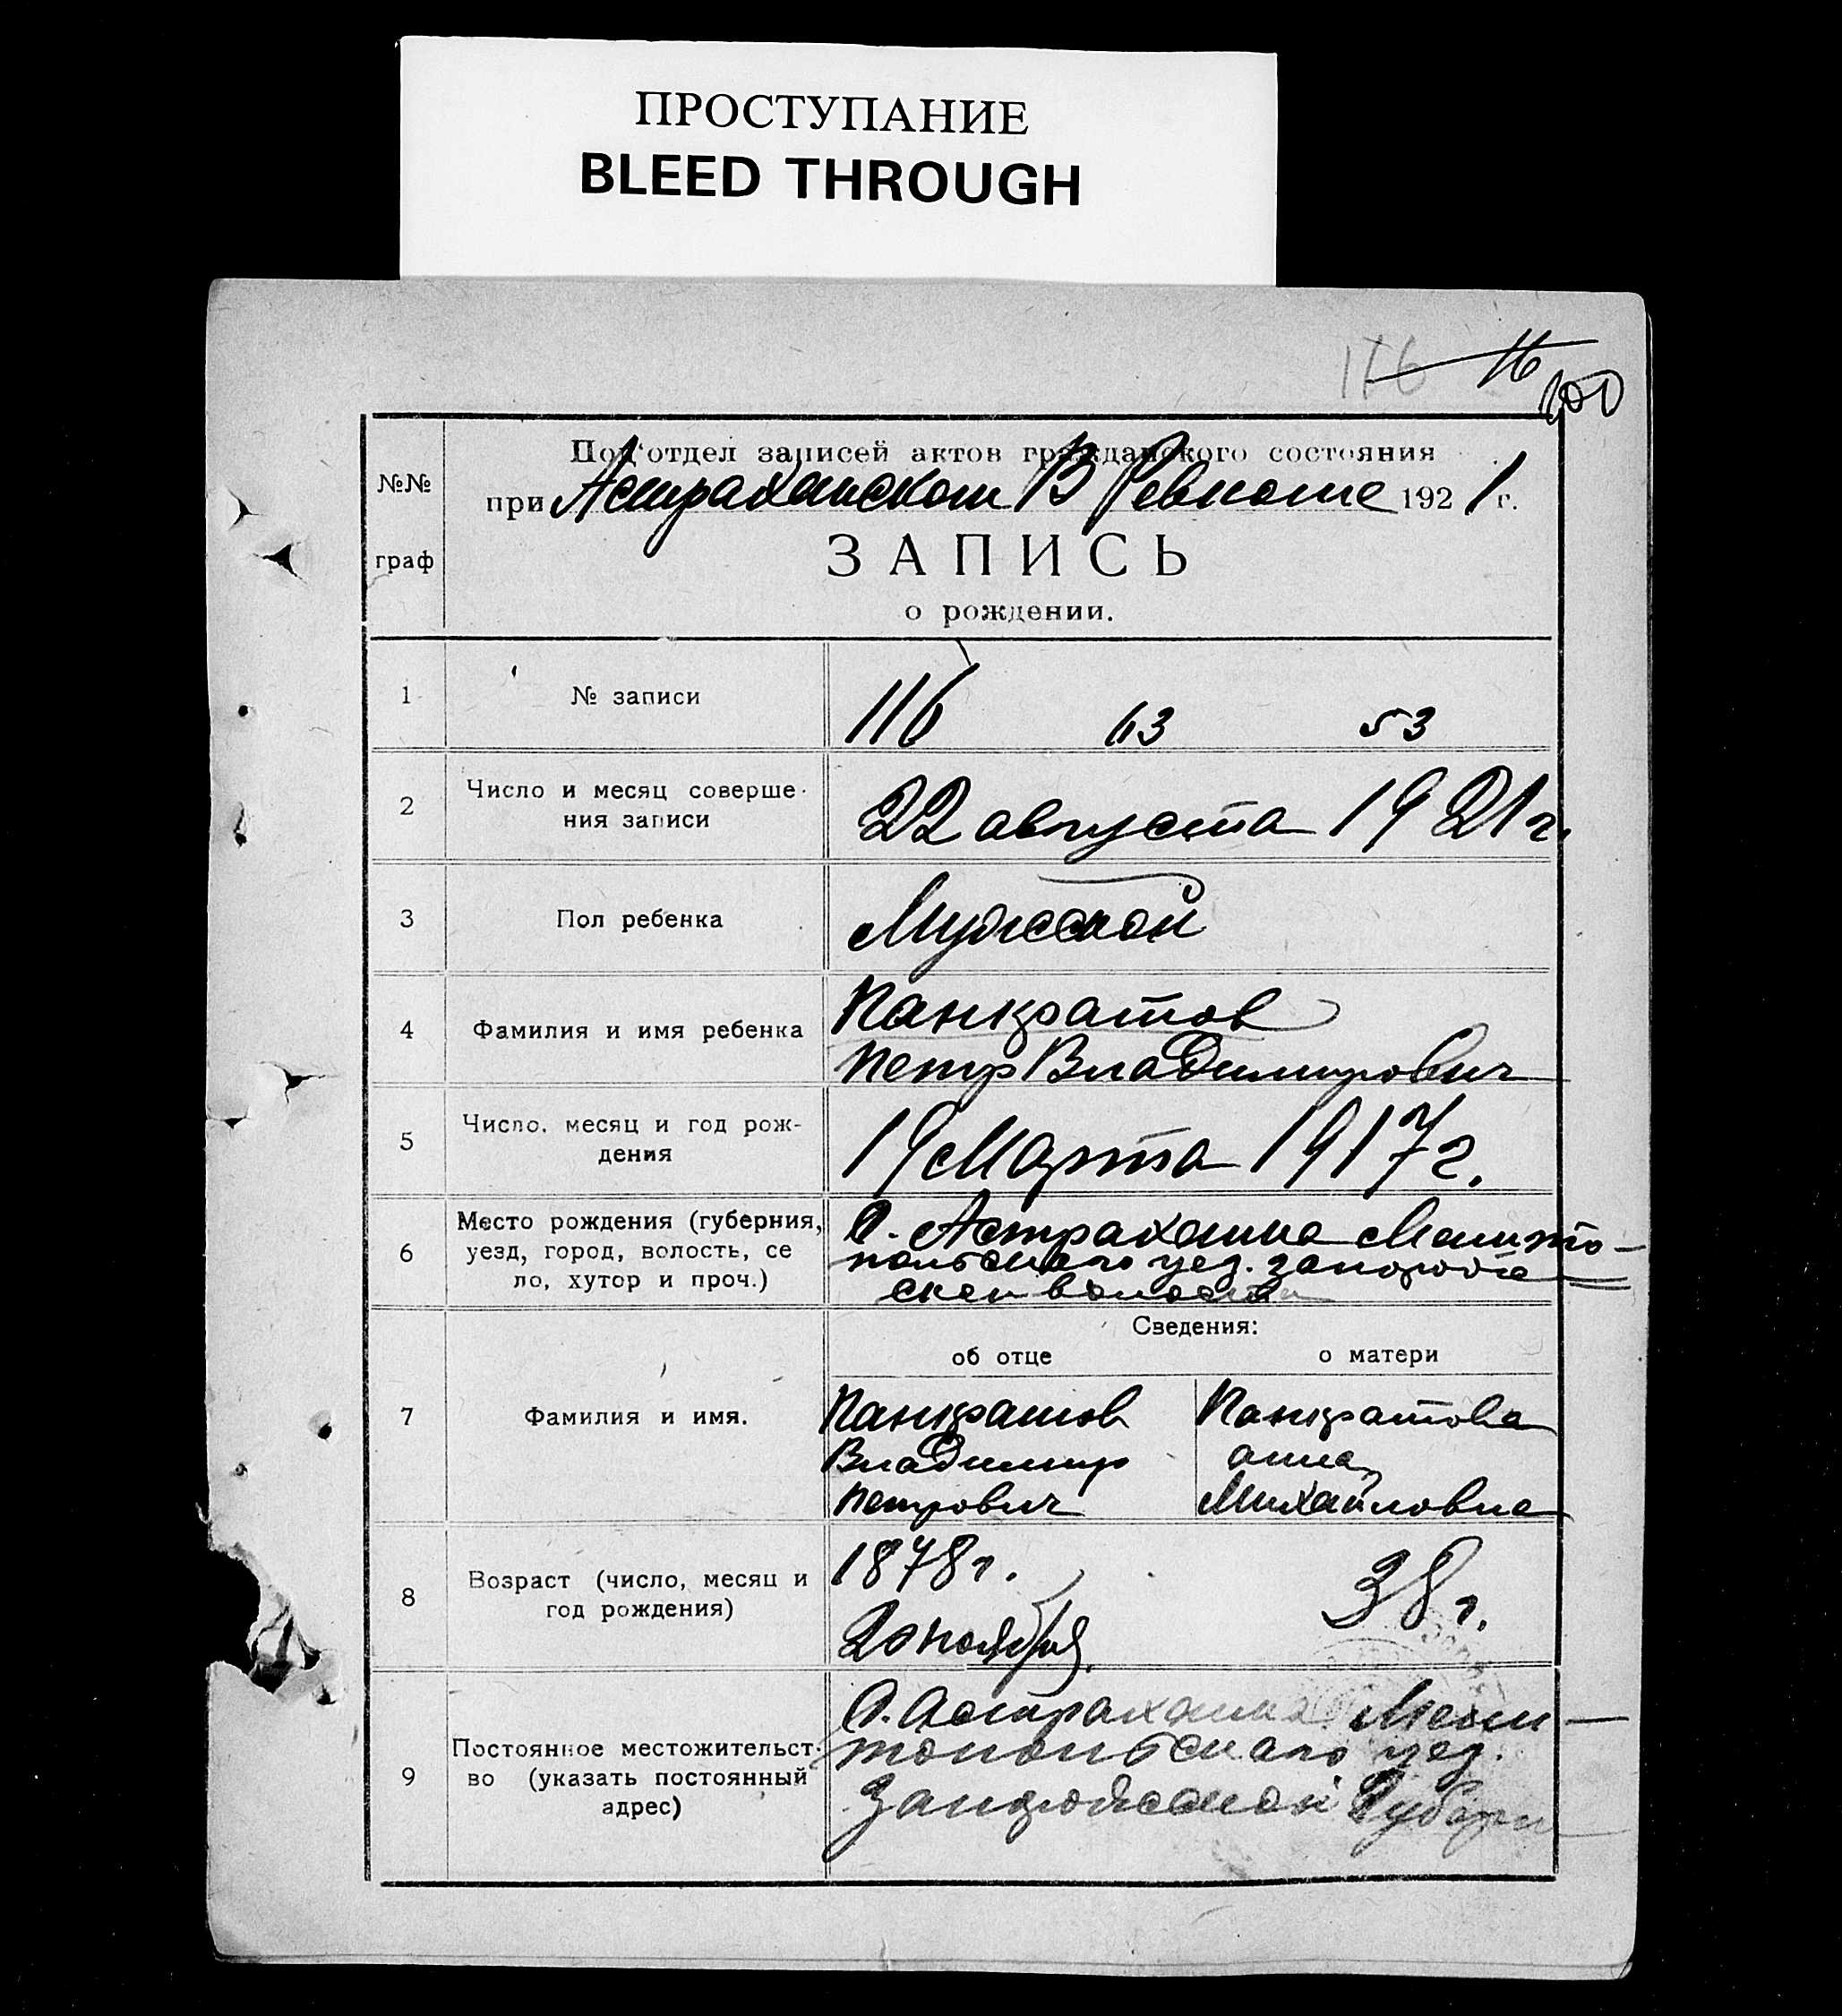 ПРОСТУПАНИЕ
BLEED THROUGH
116 16
100
№№
граф
Под‘отдел записей актов гражданского состояния
при Астраханском В Ревкоме 1921 г.
ЗАПИСЬ
о рождении.
1 № записи 116 63 53
2 Число и месяц соверше-
ния записи 22 августа 1921 г.
3 Пол ребенка Мужской
4 Фамилия и имя ребенка Панкратов
Петр Владимирович
5 Число, месяц и год рож-
дения 19 Марта 1917 г.
6 Место рождения (губерния,
уезд, город, волость, се
ло, хутор и проч.)
С. Астраханка Мелито-
польскаго уез.
волости
Сведения:
об отце о матери
7 Фамилия и имя.
Панкратов Панкратова
Владимир анна
Петрович Михайловна
8 Возраст (число, месяц и
год рождения)
1878 г. 38 г.
20 ноября.
9 Постоянное местожительст-
во (указать постоянный
адрес)
С. Астраханка Мели-
топольскаго уез.
Запорожской Губерн